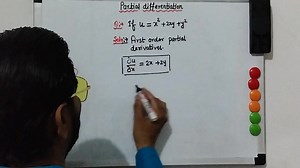 Partial differentiation
Q:- If u = x² + 2xy + y²
Soln:- First order partial
derivatives
∂u/∂x = 2x + 2y